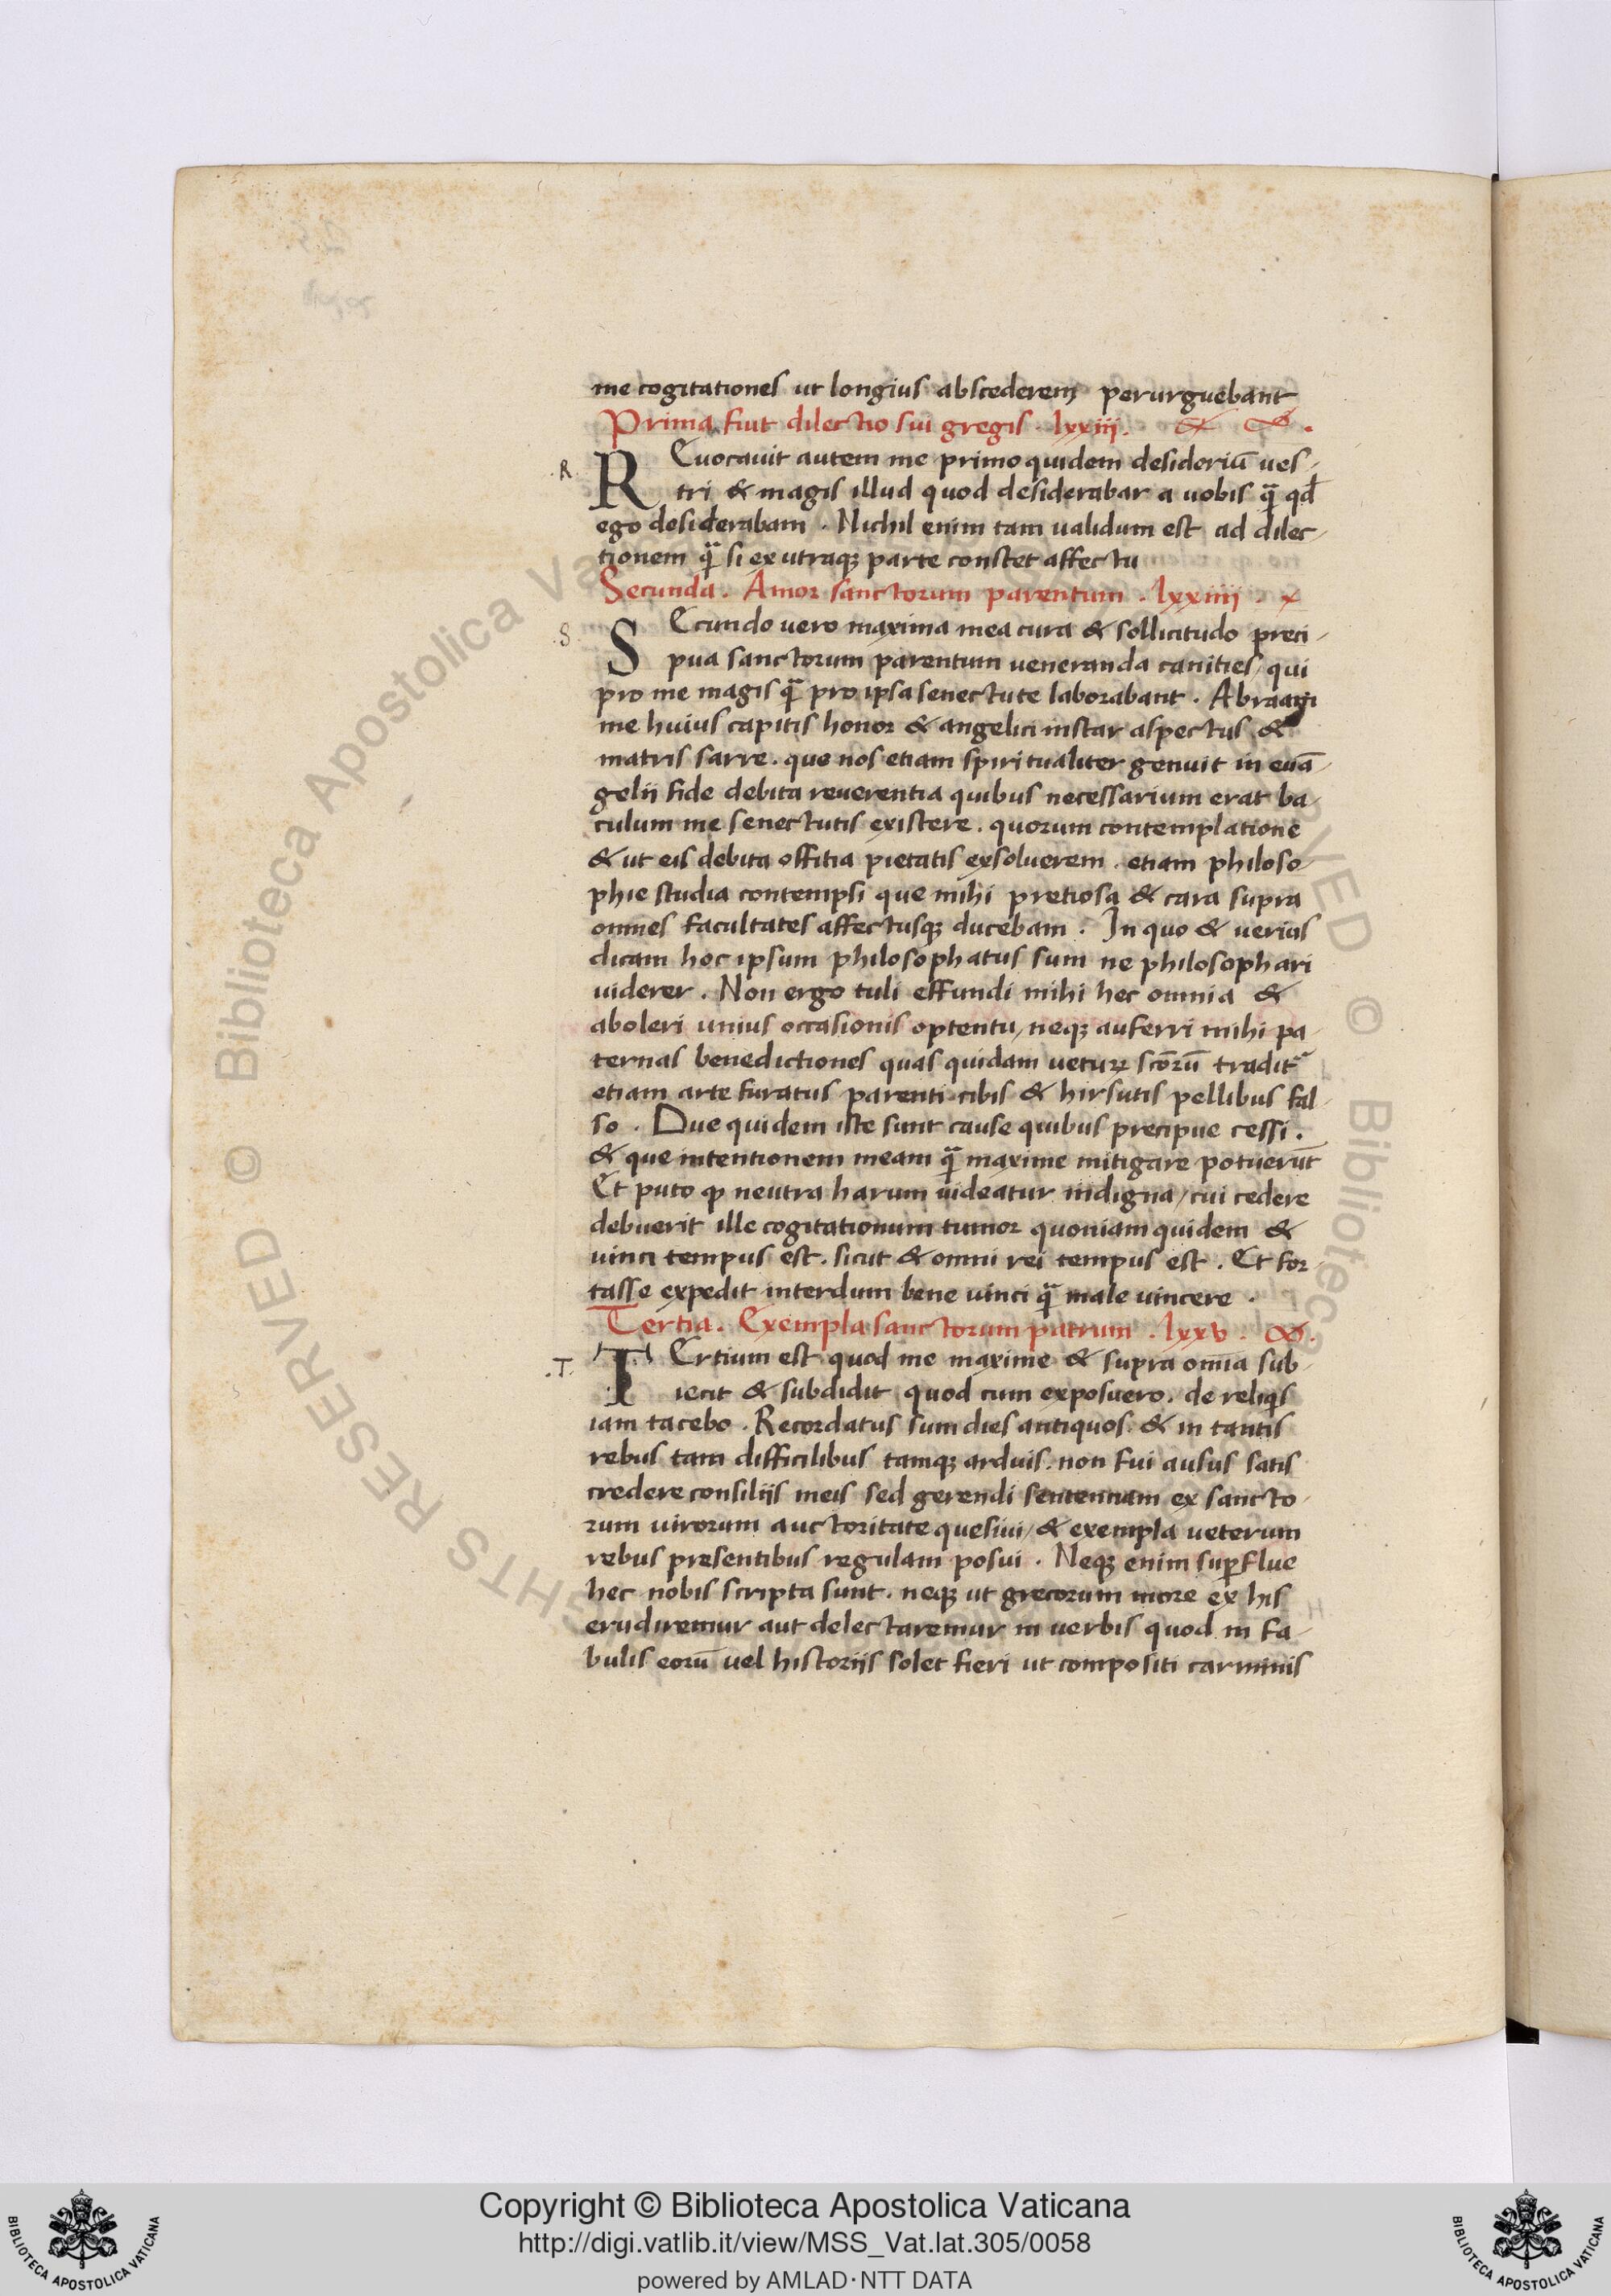 me cogitationes ut longius abscederem perurguebant
Prima fiut dilectio sui gregis . lxxiii.
.R. REuocauit autem me primo quidem desideriū ues-
tri & magis illud quod desiderabar a uobis qᷓ qd̄
ego desiderabam . Nichil enim tam ualidum est ad dilec-
tionem qᷓ si ex utraqꝫ parte constet affectu
Secunda . Amor sanctorum parentum . lxxiiii .
.S. SEcundo uero maxima mea cura & sollicitudo preci-
pua sanctorum parentum ueneranda canities / qui
pro me magis qᷓ pro ipsa senectute laborabant . Abraam
me huius capitis honor & angelici instar aspectus &
matris sarre . que nos etiam spiritualiter genuit in euā-
gelii fide debita reuerentia quibus necessarium erat ba-
culum me senectutis existere . quorum contemplatione
& ut eis debita offitia pietatis exsoluerem . etiam philoso-
phie studia contempsi que mihi pretiosa & cara supra
omnes facultates affectusqꝫ ducebam . In quo & uerius
dicam hoc ipsum philosophatus sum ne philosophari
uiderer . Non ergo tuli effundi mihi hec omnia &
aboleri unius occasionis optentu / neqꝫ auferri mihi pa-
ternas benedictiones quas quidam uetuꝝ scōrū tradit᷑
etiam arte furatus parenti cibis & hirsutis pellibus fal-
so . Due quidem iste sunt cause quibus precipue cessi .
& que intentionem meam qᷓ maxime mitigare potuerūt
Et puto ꝙ neutra harum uideatur indigna / cui cedere
debuerit ille cogitationum tumor quoniam quidem &
uinci tempus est . sicut & omni rei tempus est . Et for-
tasse expedit interdum bene uinci qᷓ male uincere .
Tertia . Exempla sanctorum patrum . lxxv .
.T. TErtium est quod me maxime & supra omīa sub-
iecit & subdidit quod cum exposuero . de reliqͥs
iam tacebo . Recordatus sum dies antiquos & in tantis
rebus tam difficilibus tamqꝫ arduis . non fui ausus satis
credere consiliis meis sed gerendi sententiam ex sancto-
rum uirorum auctoritate quesiui / & exempla ueterum
rebus presentibus regulam posui . Neqꝫ enim suꝑflue
hec nobis scripta sunt . neqꝫ ut grecorum more ex his
erudiremur aut delectaremur in uerbis quod in fa-
bulis eorū uel historiis solet fieri ut compositi carminis
© Biblioteca Apostolica Vaticana
RIGHTS RESERVED © Biblioteca
Copyright © Biblioteca Apostolica Vaticana
http://digi.vatlib.it/view/MSS_Vat.lat.305/0058
powered by AMLAD·NTT DATA
BIBLIOTECA APOSTOLICA VATICANA
BIBLIOTECA APOSTOLICA VATICANA